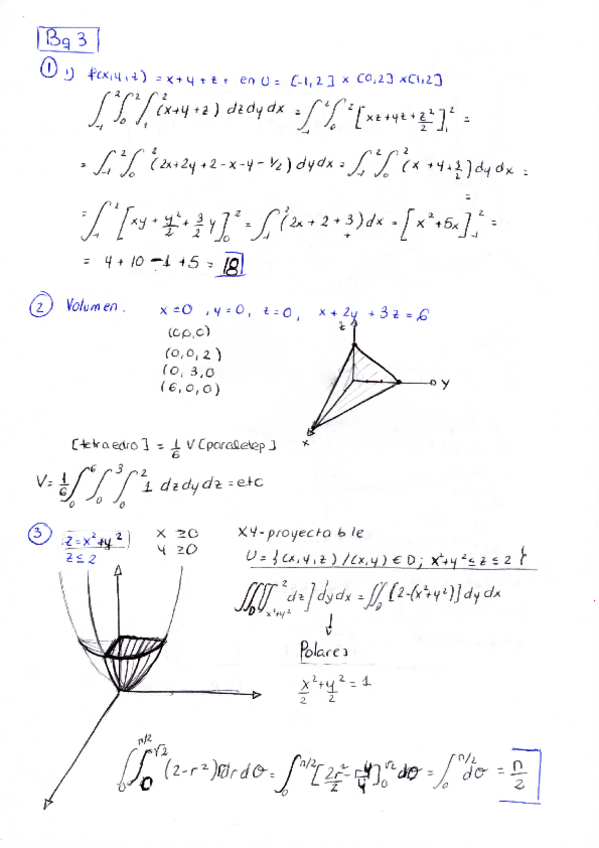 Bq 3
① 1) f(x,y,z) = x+y+z, en U = [-1,2] x [0,2] x [1,2]
∫₋₁² ∫₀² ∫₁² (x+y+z) dz dy dx = ∫₋₁² ∫₀² [xz+yz+z²/2]₁² =
= ∫₋₁² ∫₀² (2x+2y+2-x-y-1/2) dy dx = ∫₋₁² ∫₀² (x+y+3/2) dy dx =
=
= ∫₋₁² [xy + y²/2 + 3/2 y]₀² = ∫₋₁² (2x+2+3) dx = [x²+5x]₋₁² =
= 4+10-1+5 = 18
② Volumen. x=0, y=0, z=0, x+2y+3z=6
(0,0,0)
(0,0,2)
(0,3,0
(6,0,0)
z
y
x
[tetraedro] = 1/6 V[paralelep]
V = 1/6 ∫₀⁶ ∫₀³ ∫₀² 1 dz dy dz = etc
③ z=x²+y² x ≥0 XY-proyectable
z≤2 y ≥0 U = {(x,y,z) / (x,y) ∈ D; x²+y² ≤ z ≤ 2}
∬_D ∫_{x²+y²}² dz] dy dx = ∬ [2-(x²+y²)] dy dx
↓
Polares
x²/2 + y²/2 = 1
∫₀^{π/2} ∫₀^{√2} (2-r²) r dr dθ = ∫₀^{π/2} [2r²/2 - r⁴/4]₀^{√2} dθ = ∫₀^{π/2} dθ = π/2